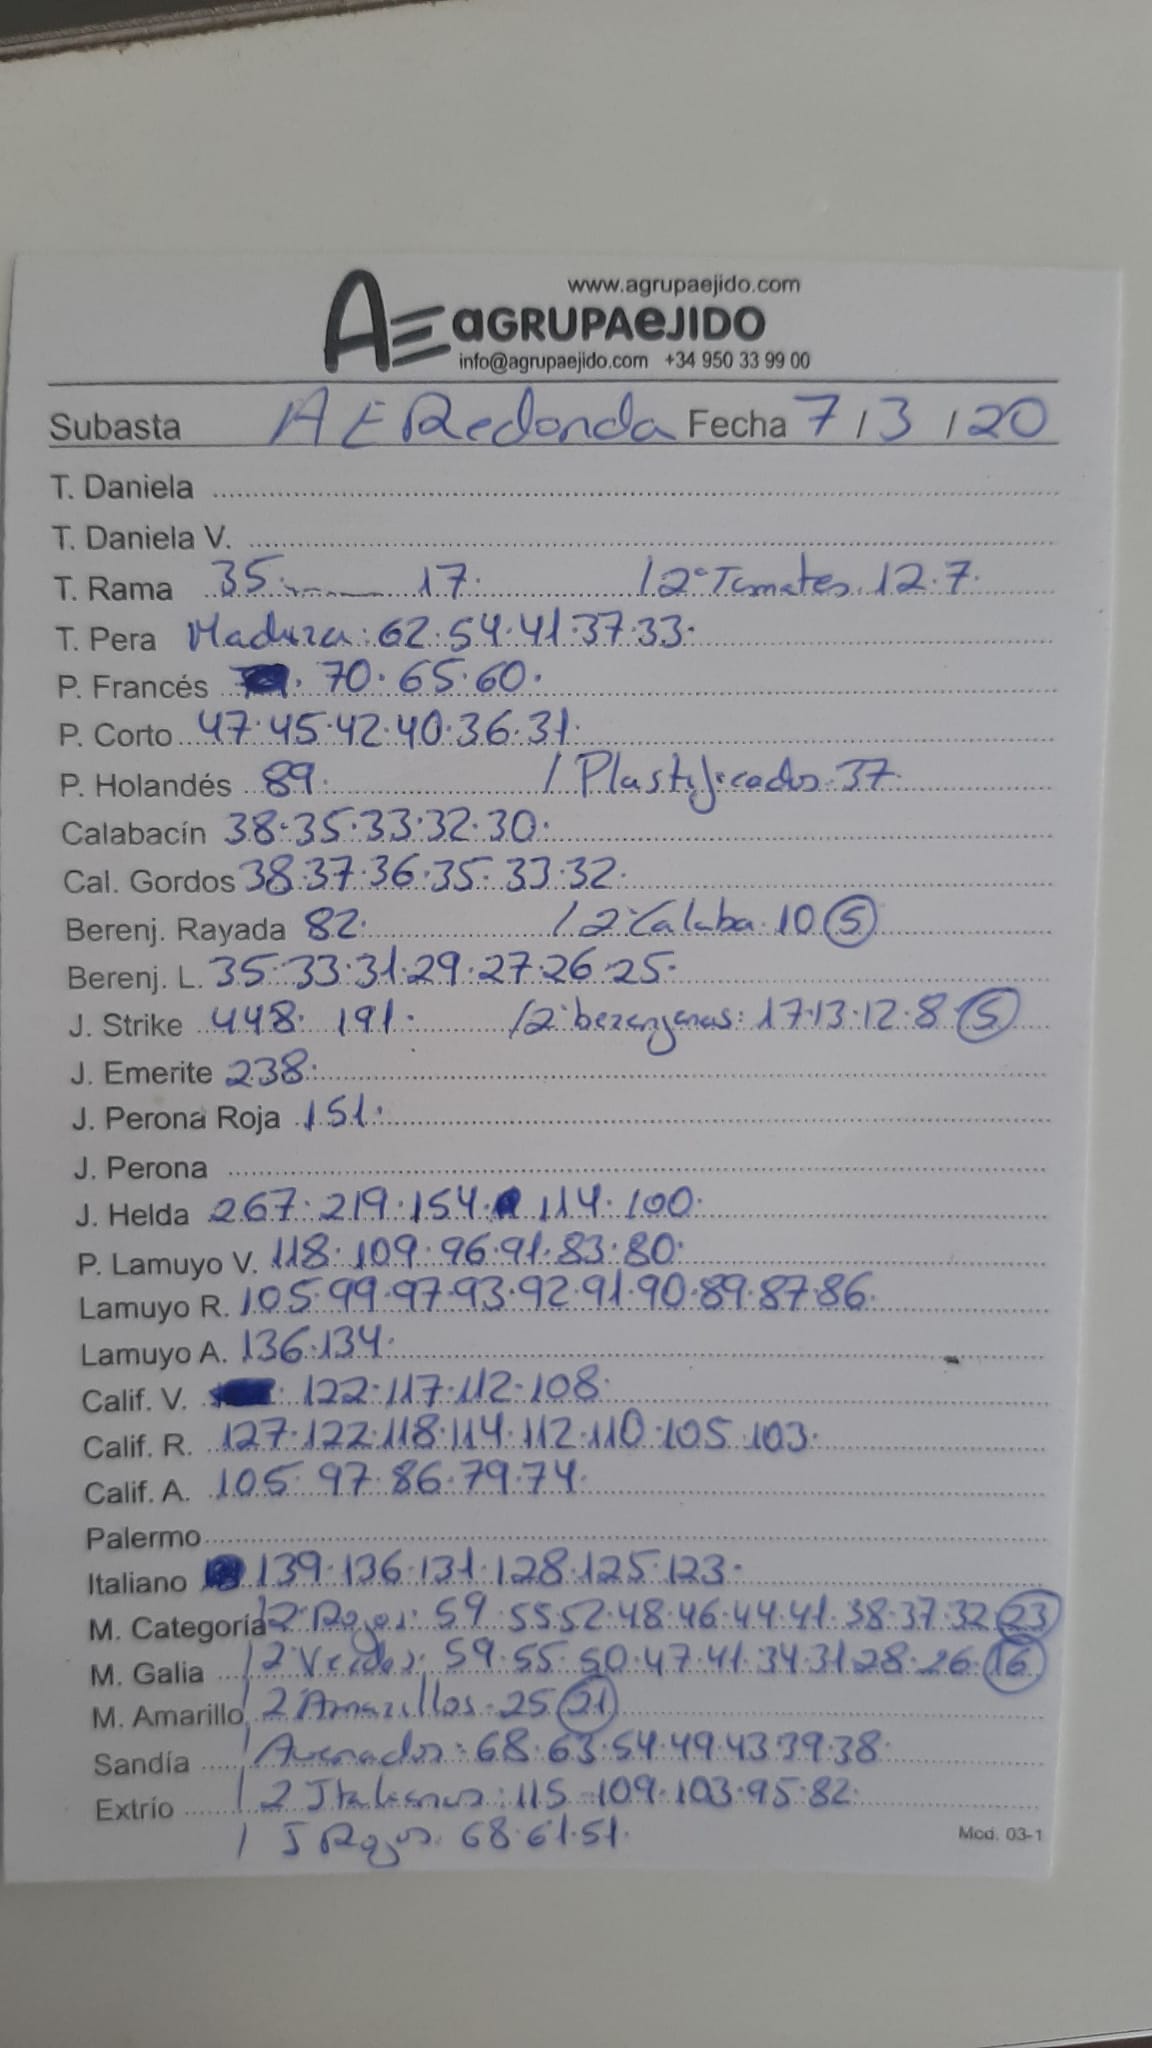 www.agrupaejido.com
AE aGRUPAeJIDO
info@agrupaejido.com +34 950 33 99 00
Subasta AE Redonda Fecha 7/3/20
T. Daniela
T. Daniela V.
T. Rama 35 17. / 2ª Tomates. 12.7.
T. Pera Madura: 62.54.41.37.33.
P. Francés 70.65.60.
P. Corto 47.45.42.40.36.31.
P. Holandés 89. / Plastificados 37.
Calabacín 38.35.33.32.30.
Cal. Gordos 38.37.36.35.33.32.
Berenj. Rayada 82. / 2ª Calaba. 10 (5)
Berenj. L. 35.33.31.29.27.26.25.
J. Strike 448. 191. / 2ª berenjenas: 17.13.12.8 (5)
J. Emerite 238.
J. Perona Roja 151.
J. Perona
J. Helda 267.219.154. 114.100.
P. Lamuyo V. 118.109.96.91.83.80.
Lamuyo R. 105.99.97.93.92.91.90.89.87.86.
Lamuyo A. 136.134.
Calif. V. 122.117.112.108.
Calif. R. 127.122.118.114.112.110.105.103.
Calif. A. 105.97.86.79.74.
Palermo
Italiano 139.136.131.128.125.123.
M. Categoría / 2ª Rojos: 59.55.52.48.46.44.41.38.37.32 (23)
M. Galia / 2 Verdes: 59.55.50.47.41.34.31.28.26.(16)
M. Amarillo / 2 Amarillos. 25 (21)
Sandía / Asurcados: 68.63.54.49.43.39.38.
Extrío / 2 Italianos: 115.109.103.95.82.
/ J Rojos: 68.61.51.
Mod. 03-1